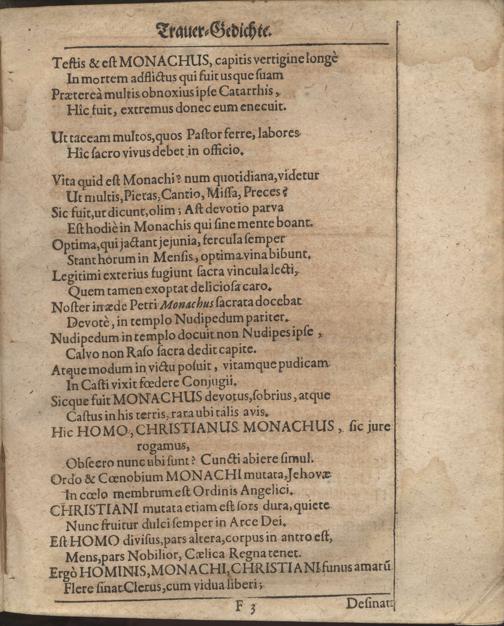 Trauer-Gedichte.
Testis & est MONACHUS, capitis vertigine longè
In mortem adflictus qui fuit usque suam
Prætereà multis obnoxius ipse Catarrhis,
Hîc fuit, extremus donec eum enecuit.
Ut taceam multos, quos Pastor ferre, labores
Hîc sacro vivus debet in officio.
Vita quid est Monachi? num quotidiana, videtur
Ut multis, Pietas, Cantio, Missa, Preces?
Sic fuit, ut dicunt, olim; Ast devotio parva
Est hodiè in Monachis qui sine mente boant.
Optima, qui jactant jejunia, fercula semper
Stant horum in Mensis, optima vina bibunt.
Legitimi exterius fugiunt sacra vincula lecti,
Quem tamen exoptat deliciosa caro.
Noster in æde Petri Monachus sacrata docebat
Devotè, in templo Nudipedum pariter.
Nudipedum in templo docuit non Nudipes ipse,
Calvo non Raso sacra dedit capite.
Atque modum in victu posuit, vitamque pudicam
In Casti vixit fœdere Conjugii.
Sicque fuit MONACHUS devotus, sobrius, atque
Castus in his terris, rara ubi talis avis.
Hic HOMO, CHRISTIANUS MONACHUS, sic jure
rogamus,
Obsecro nunc ubi sunt? Cuncti abiere simul.
Ordo & Cœnobium MONACHI mutata, Jehovæ
In cœlo membrum est Ordinis Angelici.
CHRISTIANI mutata etiam est sors dura, quiete
Nunc fruitur dulci semper in Arce Dei.
Est HOMO divisus, pars altera, corpus in antro est,
Mens, pars Nobilior, Cælica Regna tenet.
Ergò HOMINIS, MONACHI, CHRISTIANI funus amarũ
Flere sinat Clerus, cum vidua liberi;
F 3
Desinat